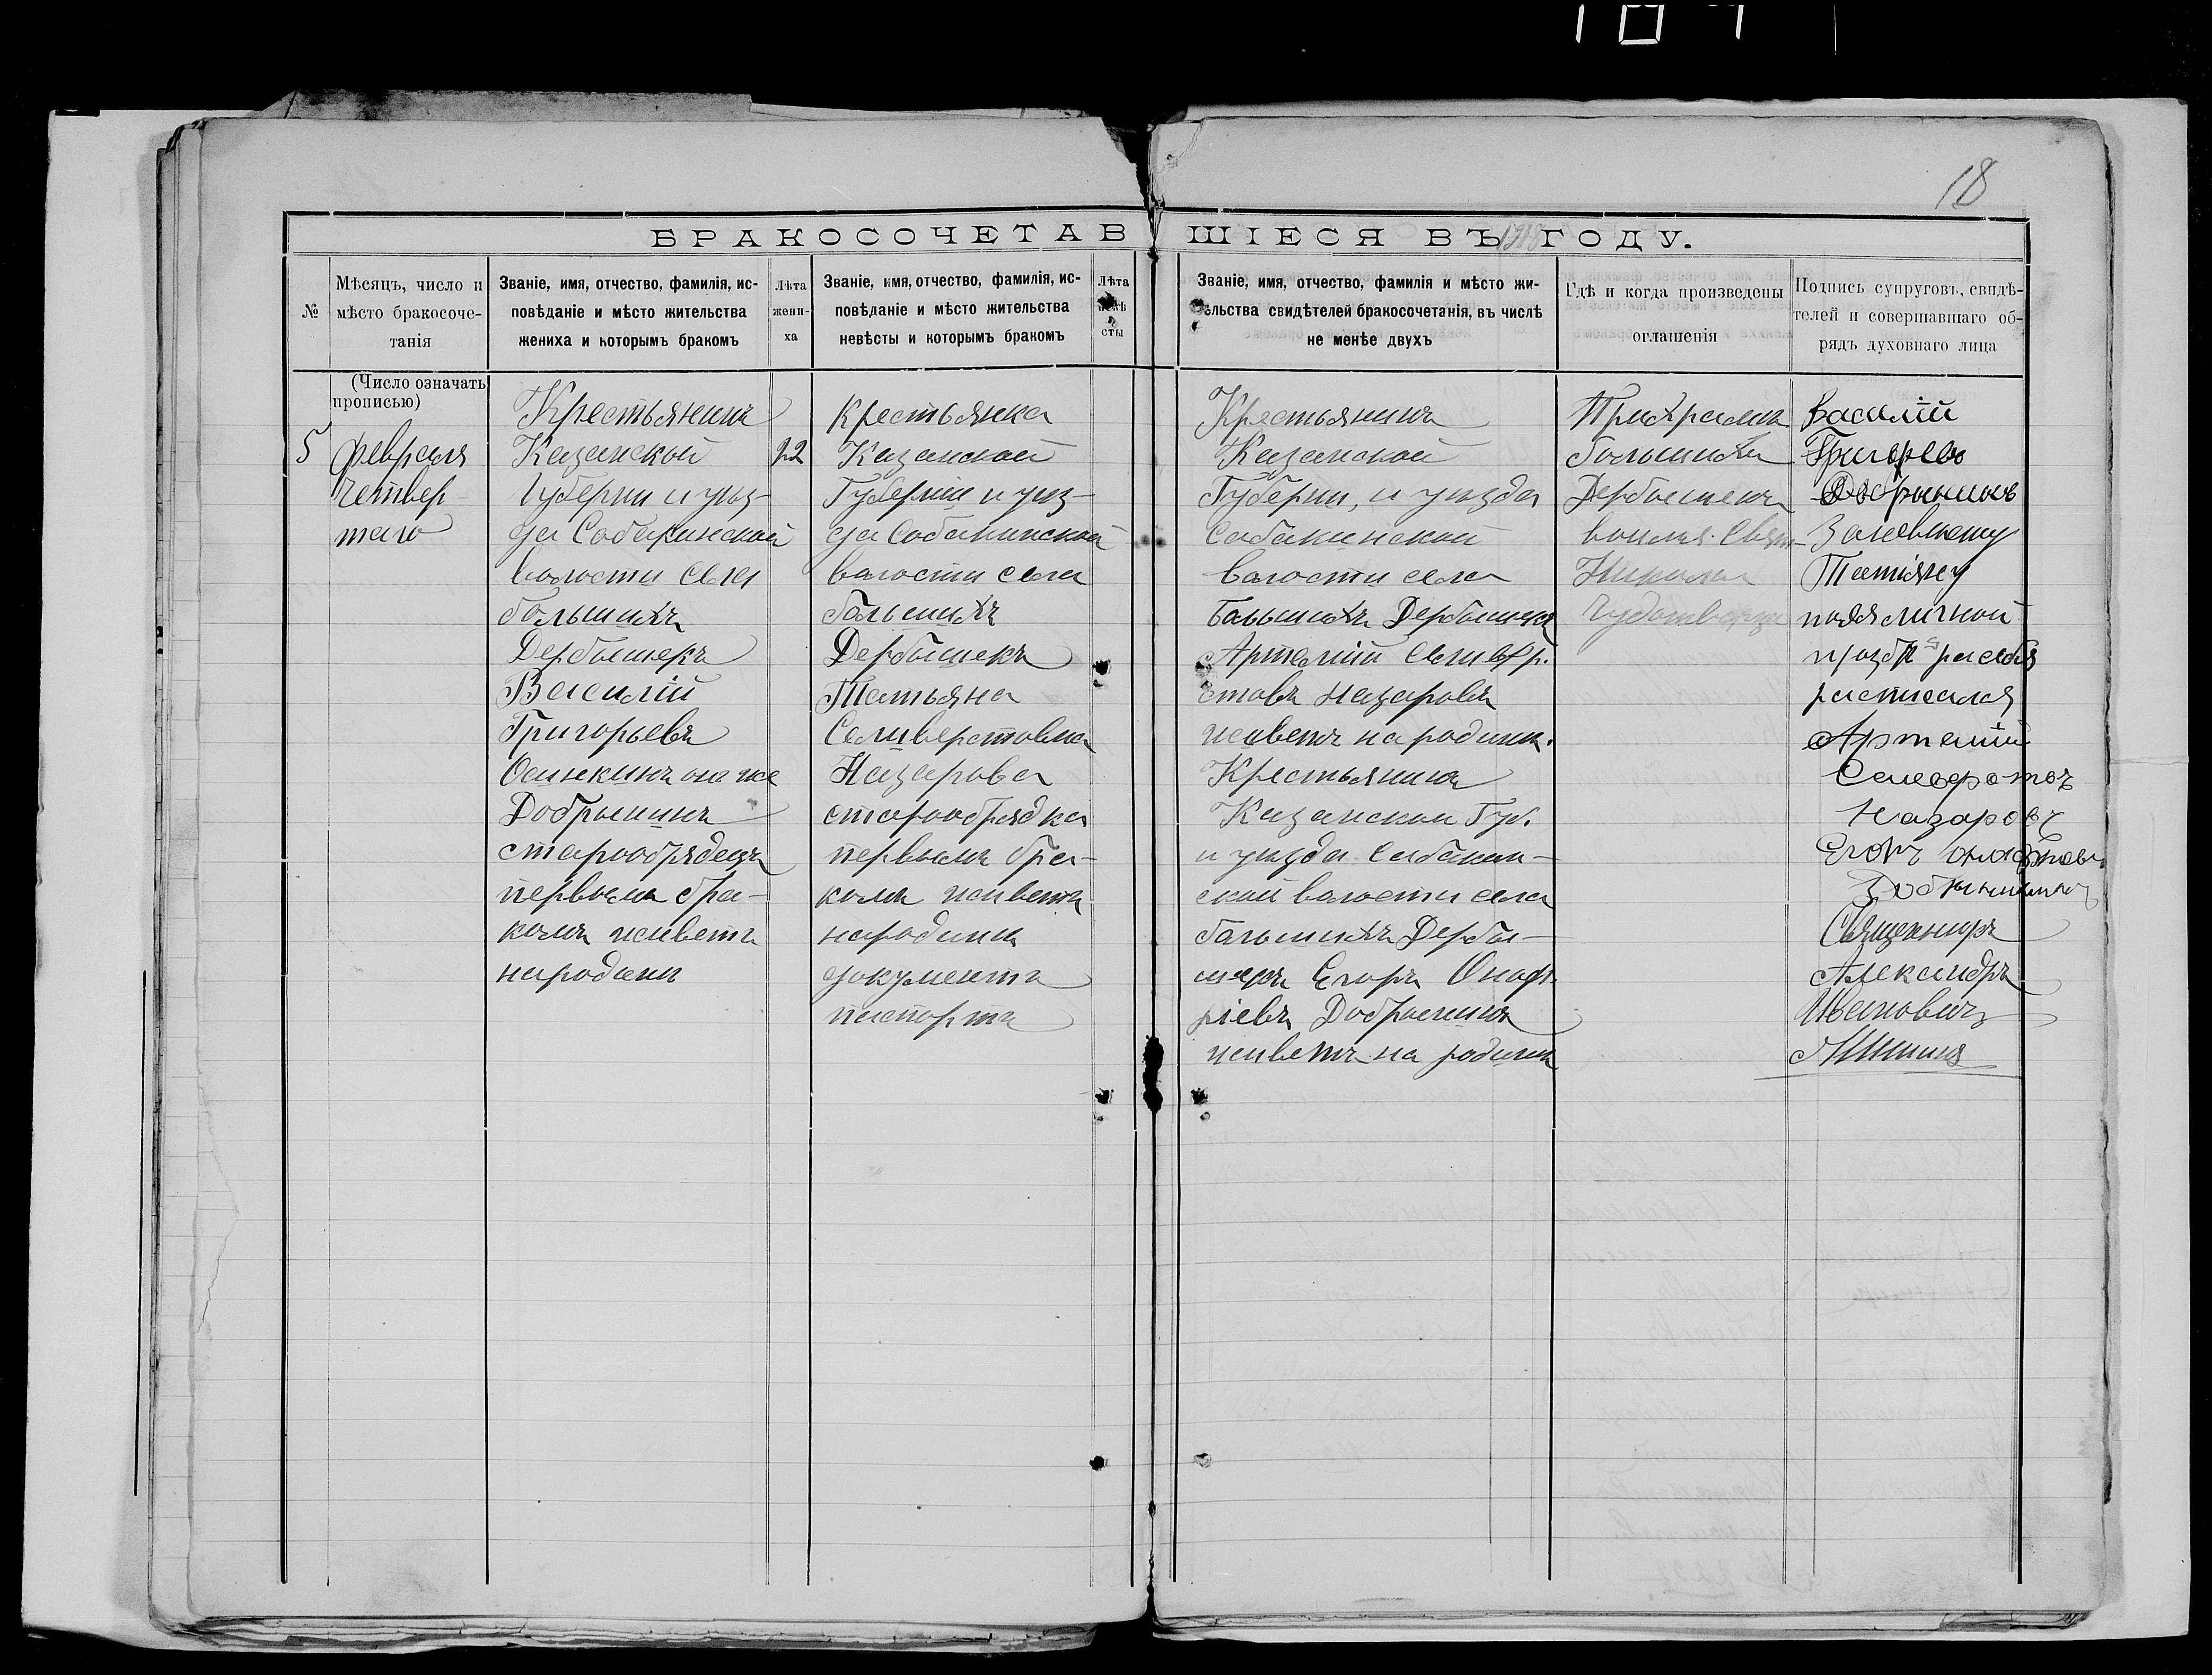 18
БРАКОСОЧЕТАВШІЕСЯ ВЪ 1918 ГОДУ.
№
Мѣсяцъ, число и
мѣсто бракосоче-
танія
Званіе, имя, отчество, фамилія, ис-
повѣданіе и мѣсто жительства
жениха и которымъ бракомъ
Лѣта
жени-
ха
Званіе, имя, отчество, фамилія, ис-
повѣданіе и мѣсто жительства
невѣсты и которымъ бракомъ
Лѣта
невѣ
сты
Званіе, имя, отчество, фамилія и мѣсто жи-
тельства свидѣтелей бракосочетанія, въ числѣ
не менѣе двухъ
Гдѣ и когда произведены
оглашенія
Подпись супруговъ, свидѣ-
телей и совершавшаго об-
рядъ духовнаго лица
(Число означать
прописью)
5
февраля
четвер-
таго
Крестьянинъ
Казанской
Губерни и уѣз-
да Собакинской
волости села
большихъ
Дербышекъ
Василій
Григорьевъ
Осинкинъ он же
Добрынинъ
старообрядецъ
первымъ бра-
комъ живетъ
народины
22
Крестьянка
Казанской
Губерніи и уѣз-
да Собакинской
валости села
бальшихъ
Дербышекъ
Татьяна
Селиверстовна
Назарова
старообрядка
первымъ бра-
комъ живетъ
народины
документа
паспорта
Крестьянинъ
Казанской
Губерни, и уѣзда
Сабакинской
валости села
Бальшихъ Дербышекъ
Артемій Селивер.
стовъ Назаровъ
живетъ народинѣ.
Крестьянинъ
Казанской Губ.
и уѣзда Сабакин-
ской валости села
бальшихъ Дербы-
шекъ Егоръ Оноф.
ріевъ Добрынинъ
живетъ на родинѣ
При храме
большихъ
Дербышекъ
во имя Свят-
Николы
Чудотворца
Василій
Григорев
Добрынинъ
Заневшсту
Татіяну
по ея личной
прозбѣ за себя
расписался
Артемій
Селиверстовъ
Назаровъ
Егоръ
Добрынинъ
Священникъ
Александръ
Ивановичъ